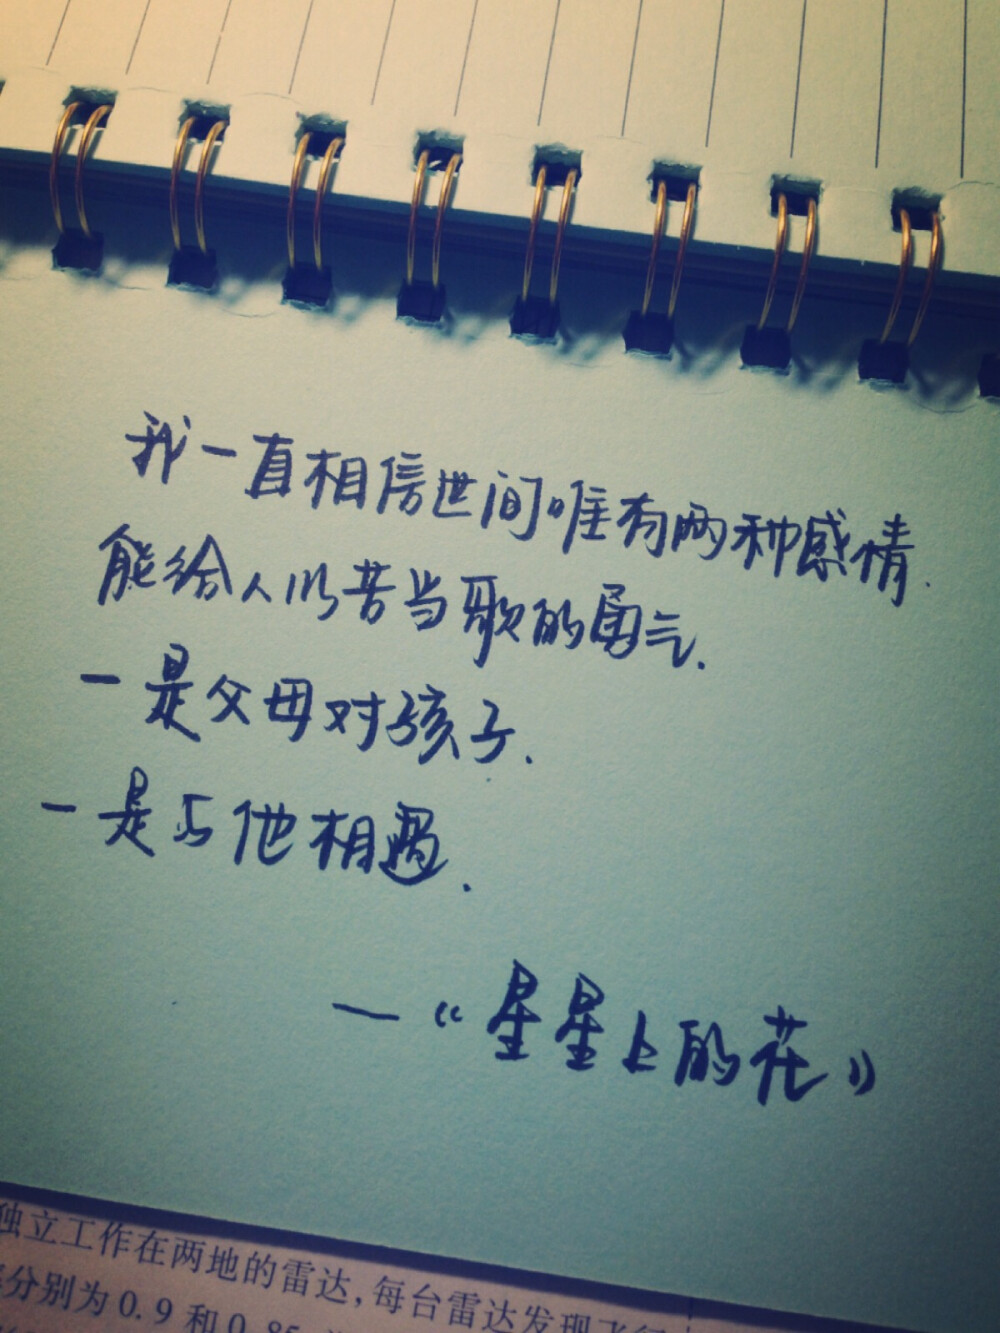 我一直相信世间唯有两种感情.
能给人以苦当歌的勇气.
一是父母对孩子.
一是与他相遇.
—《星星上的花》
独立工作在两地的雷达,每台雷达发现飞行
分别为0.9和0.85